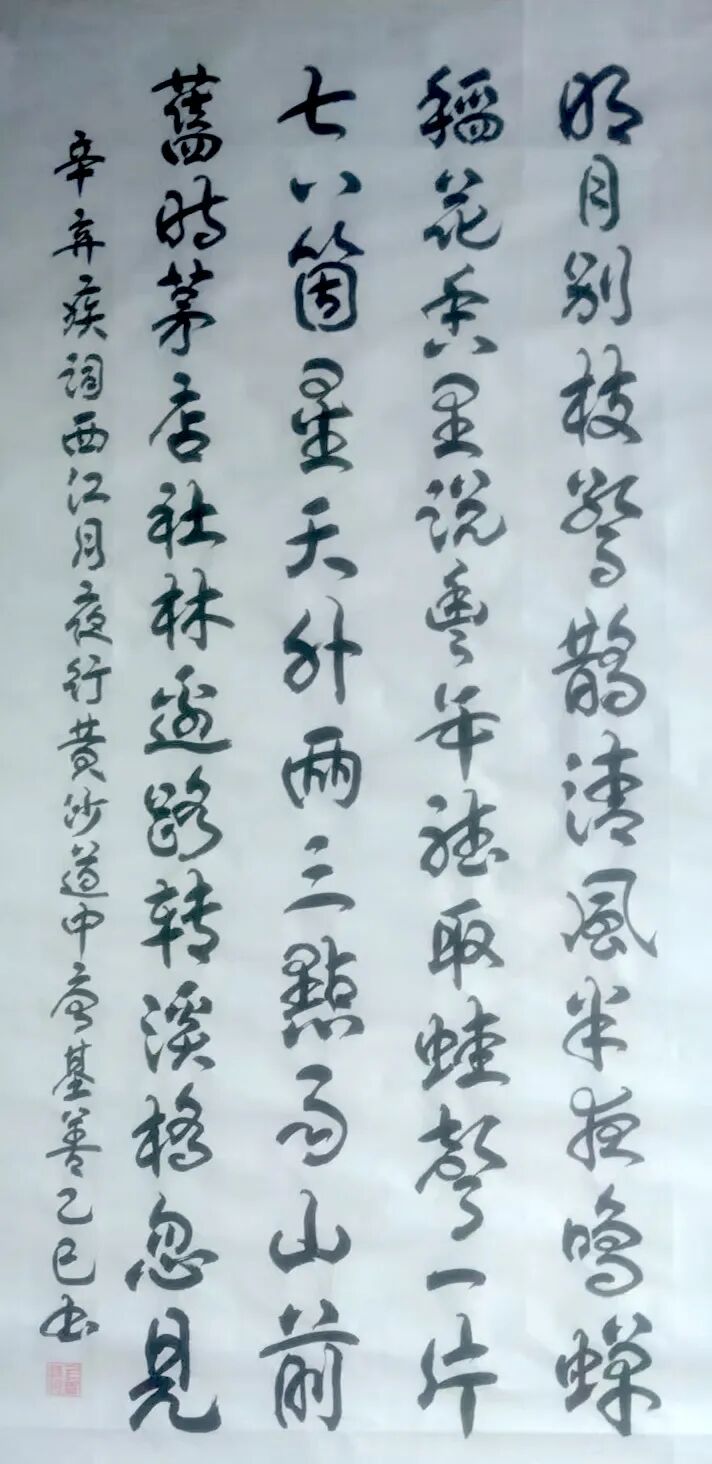 明月別枝驚鵲清風半夜鳴蟬
稻花香里說豐年聽取蛙聲一片
七八箇星天外兩三點雨山前
舊時茅店社林邊路轉溪橋忽見
辛弃疾詞西江月夜行黄沙道中唐基善乙巳书